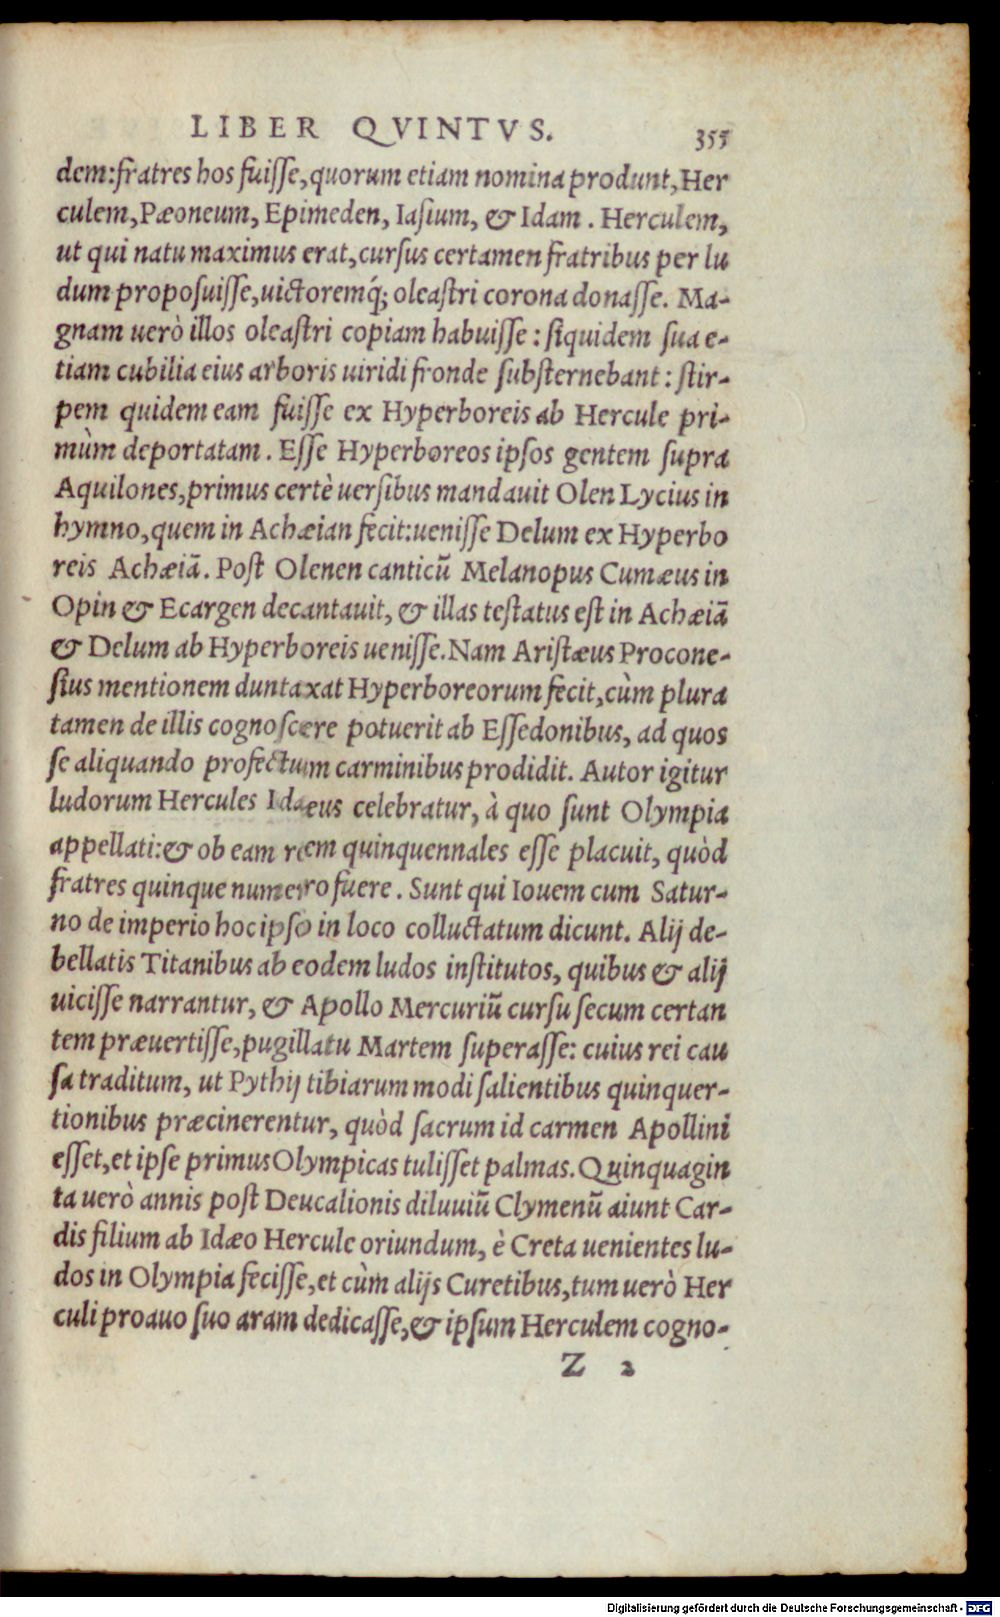 LIBER QVINTVS. 355
dem:fratres hos fuisse,quorum etiam nomina produnt,Her
culem,Pæoneum, Epimeden, Iasium, & Idam. Herculem,
ut qui natu maximus erat,cursus certamen fratribus per lu
dum proposuisse,uictoremq́; oleastri corona donasse. Ma-
gnam uerò illos oleastri copiam habuisse: siquidem sua e-
tiam cubilia eius arboris uiridi fronde substernebant: stir-
pem quidem eam fuisse ex Hyperboreis ab Hercule pri-
mùm deportatam. Esse Hyperboreos ipsos gentem supra
Aquilones,primus certè uersibus mandauit Olen Lycius in
hymno,quem in Achæian fecit:uenisse Delum ex Hyperbo
reis Achæiã. Post Olenen canticũ Melanopus Cumæus in
Opin & Ecargen decantauit, & illas testatus est in Achæiã
& Delum ab Hyperboreis uenisse. Nam Aristæus Procone-
sius mentionem duntaxat Hyperboreorum fecit,cùm plura
tamen de illis cognoscere potuerit ab Essedonibus, ad quos
se aliquando profectum carminibus prodidit. Autor igitur
ludorum Hercules Idæus celebratur, à quo sunt Olympia
appellati:& ob eam rem quinquennales esse placuit, quòd
fratres quinque numero fuere. Sunt qui Iouem cum Satur-
no de imperio hoc ipso in loco colluctatum dicunt. Alij de-
bellatis Titanibus ab eodem ludos institutos, quibus & alij
uicisse narrantur, & Apollo Mercuriũ cursu secum certan
tem præuertisse,pugillatu Martem superasse: cuius rei cau
sa traditum, ut Pythij tibiarum modi salientibus quinquer-
tionibus præcinerentur, quòd sacrum id carmen Apollini
esset,et ipse primus Olympicas tulisset palmas. Quinquagin
ta uerò annis post Deucalionis diluuiũ Clymenũ aiunt Car-
dis filium ab Idæo Hercule oriundum, è Creta uenientes lu-
dos in Olympia fecisse,et cùm alijs Curetibus,tum uerò Her
culi proauo suo aram dedicasse,& ipsum Herculem cogno-
Z 2
Digitalisierung gefördert durch die Deutsche Forschungsgemeinschaft - DFG